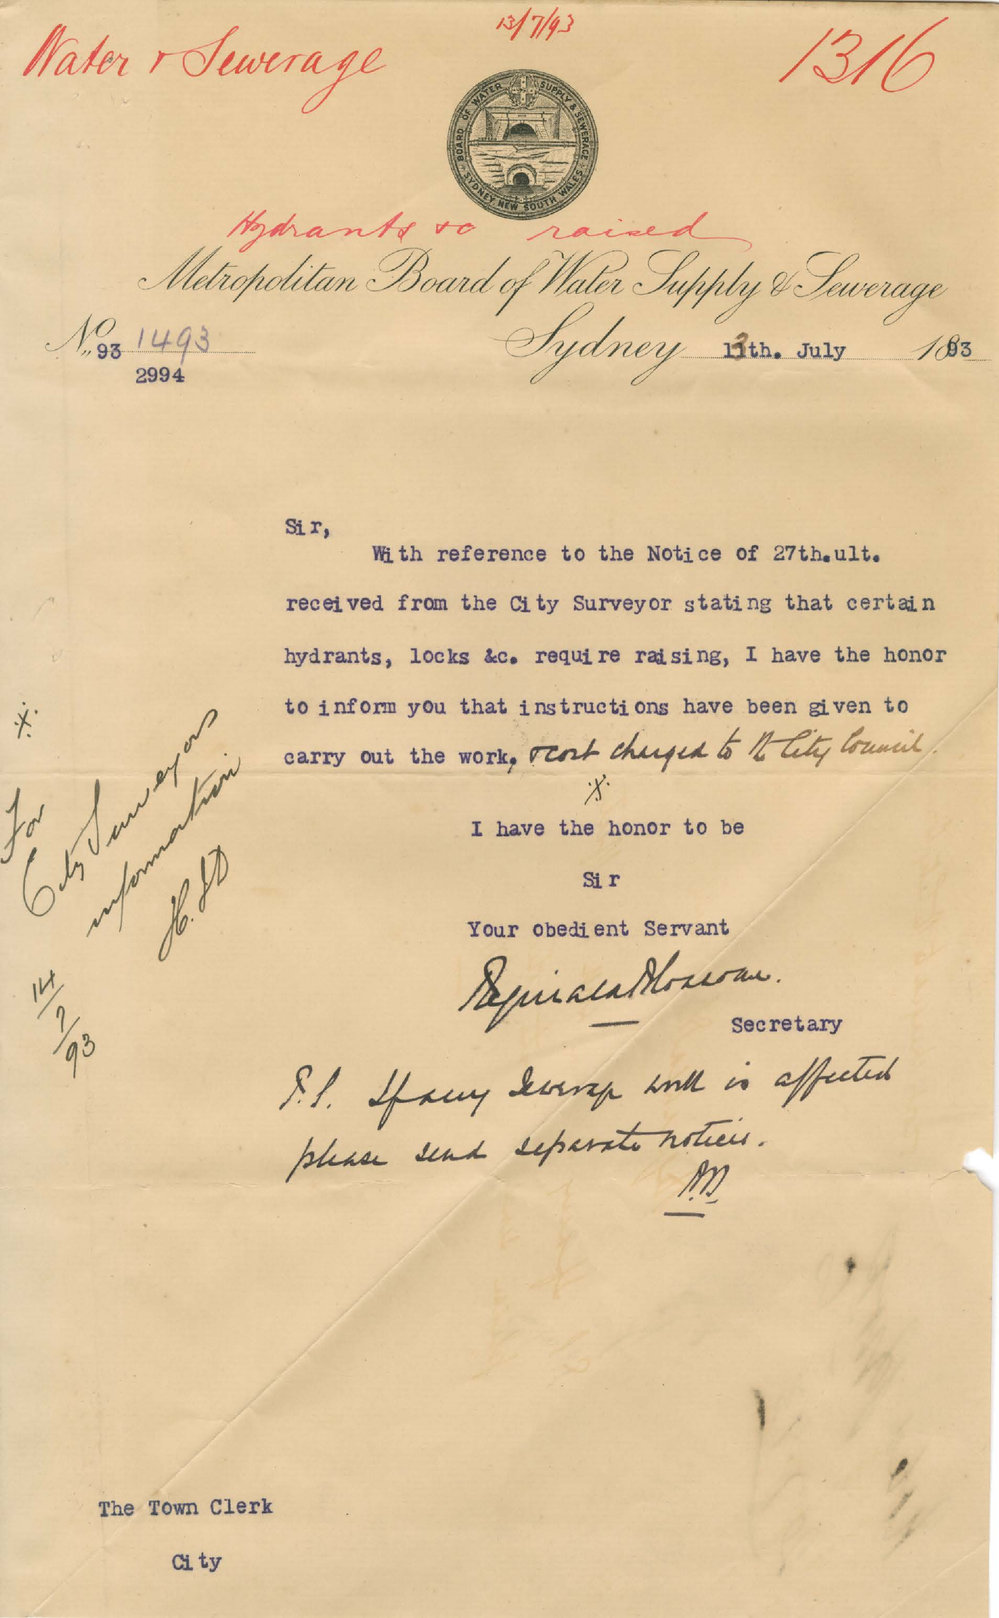 13/7/93
Water & Sewerage
1316
BOARD OF WATER SUPPLY & SEWERAGE
SYDNEY NEW SOUTH WALES
Hydrants to raised
Metropolitan Board of Water Supply & Sewerage
No 93 1493
2994
Sydney 13th. July 1893
Sir,
With reference to the Notice of 27th.ult.
received from the City Surveyor stating that certain
hydrants, locks &c. require raising, I have the honor
to inform you that instructions have been given to
carry out the work, & cost charged to City Council.
I have the honor to be
Sir
Your obedient Servant
Reginald
Secretary
P.S. If any Sewerage work is affected
please send separate notices.
For
City Surveyors
information
14/7/93
The Town Clerk
City